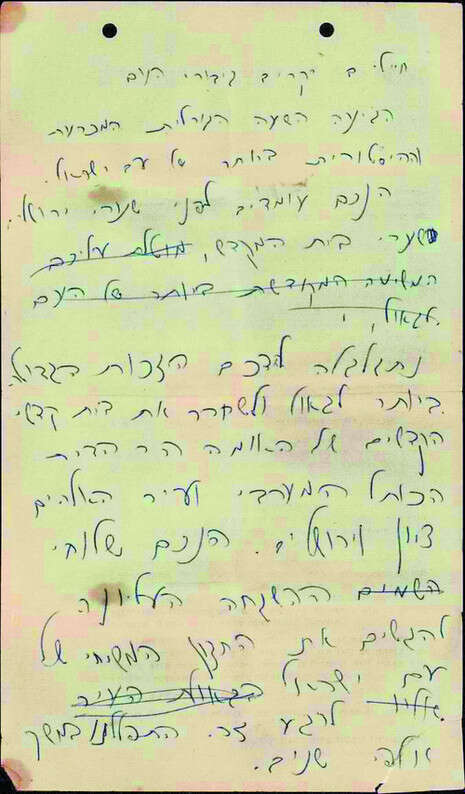 חיילים יקרים גיבורי העם
הגיעה השעה הגורלית המכרעת
וההיסטורית ביותר של עם ישראל.
הנכם עומדים לפני שערי ירוש'
שערי בית המקדש, מוטלת עליכם
המשימה המקודשת ביותר של העם
לגאול,
נתגלגלה לידכם הזכות הגדולה
ביותר לגאול ולשחרר את בית קדשי
הקדשים של האומה הר הבית
הכותל המערבי ועיר האלהים
ציון וירושלים. הנכם שלוחי
השמים ההשגחה העליונה
להגשים את החזון המשיחי של
עם ישראל בגאולת העיר
אליו לרגע זה. התפללנו במשך
אלפי שנים.